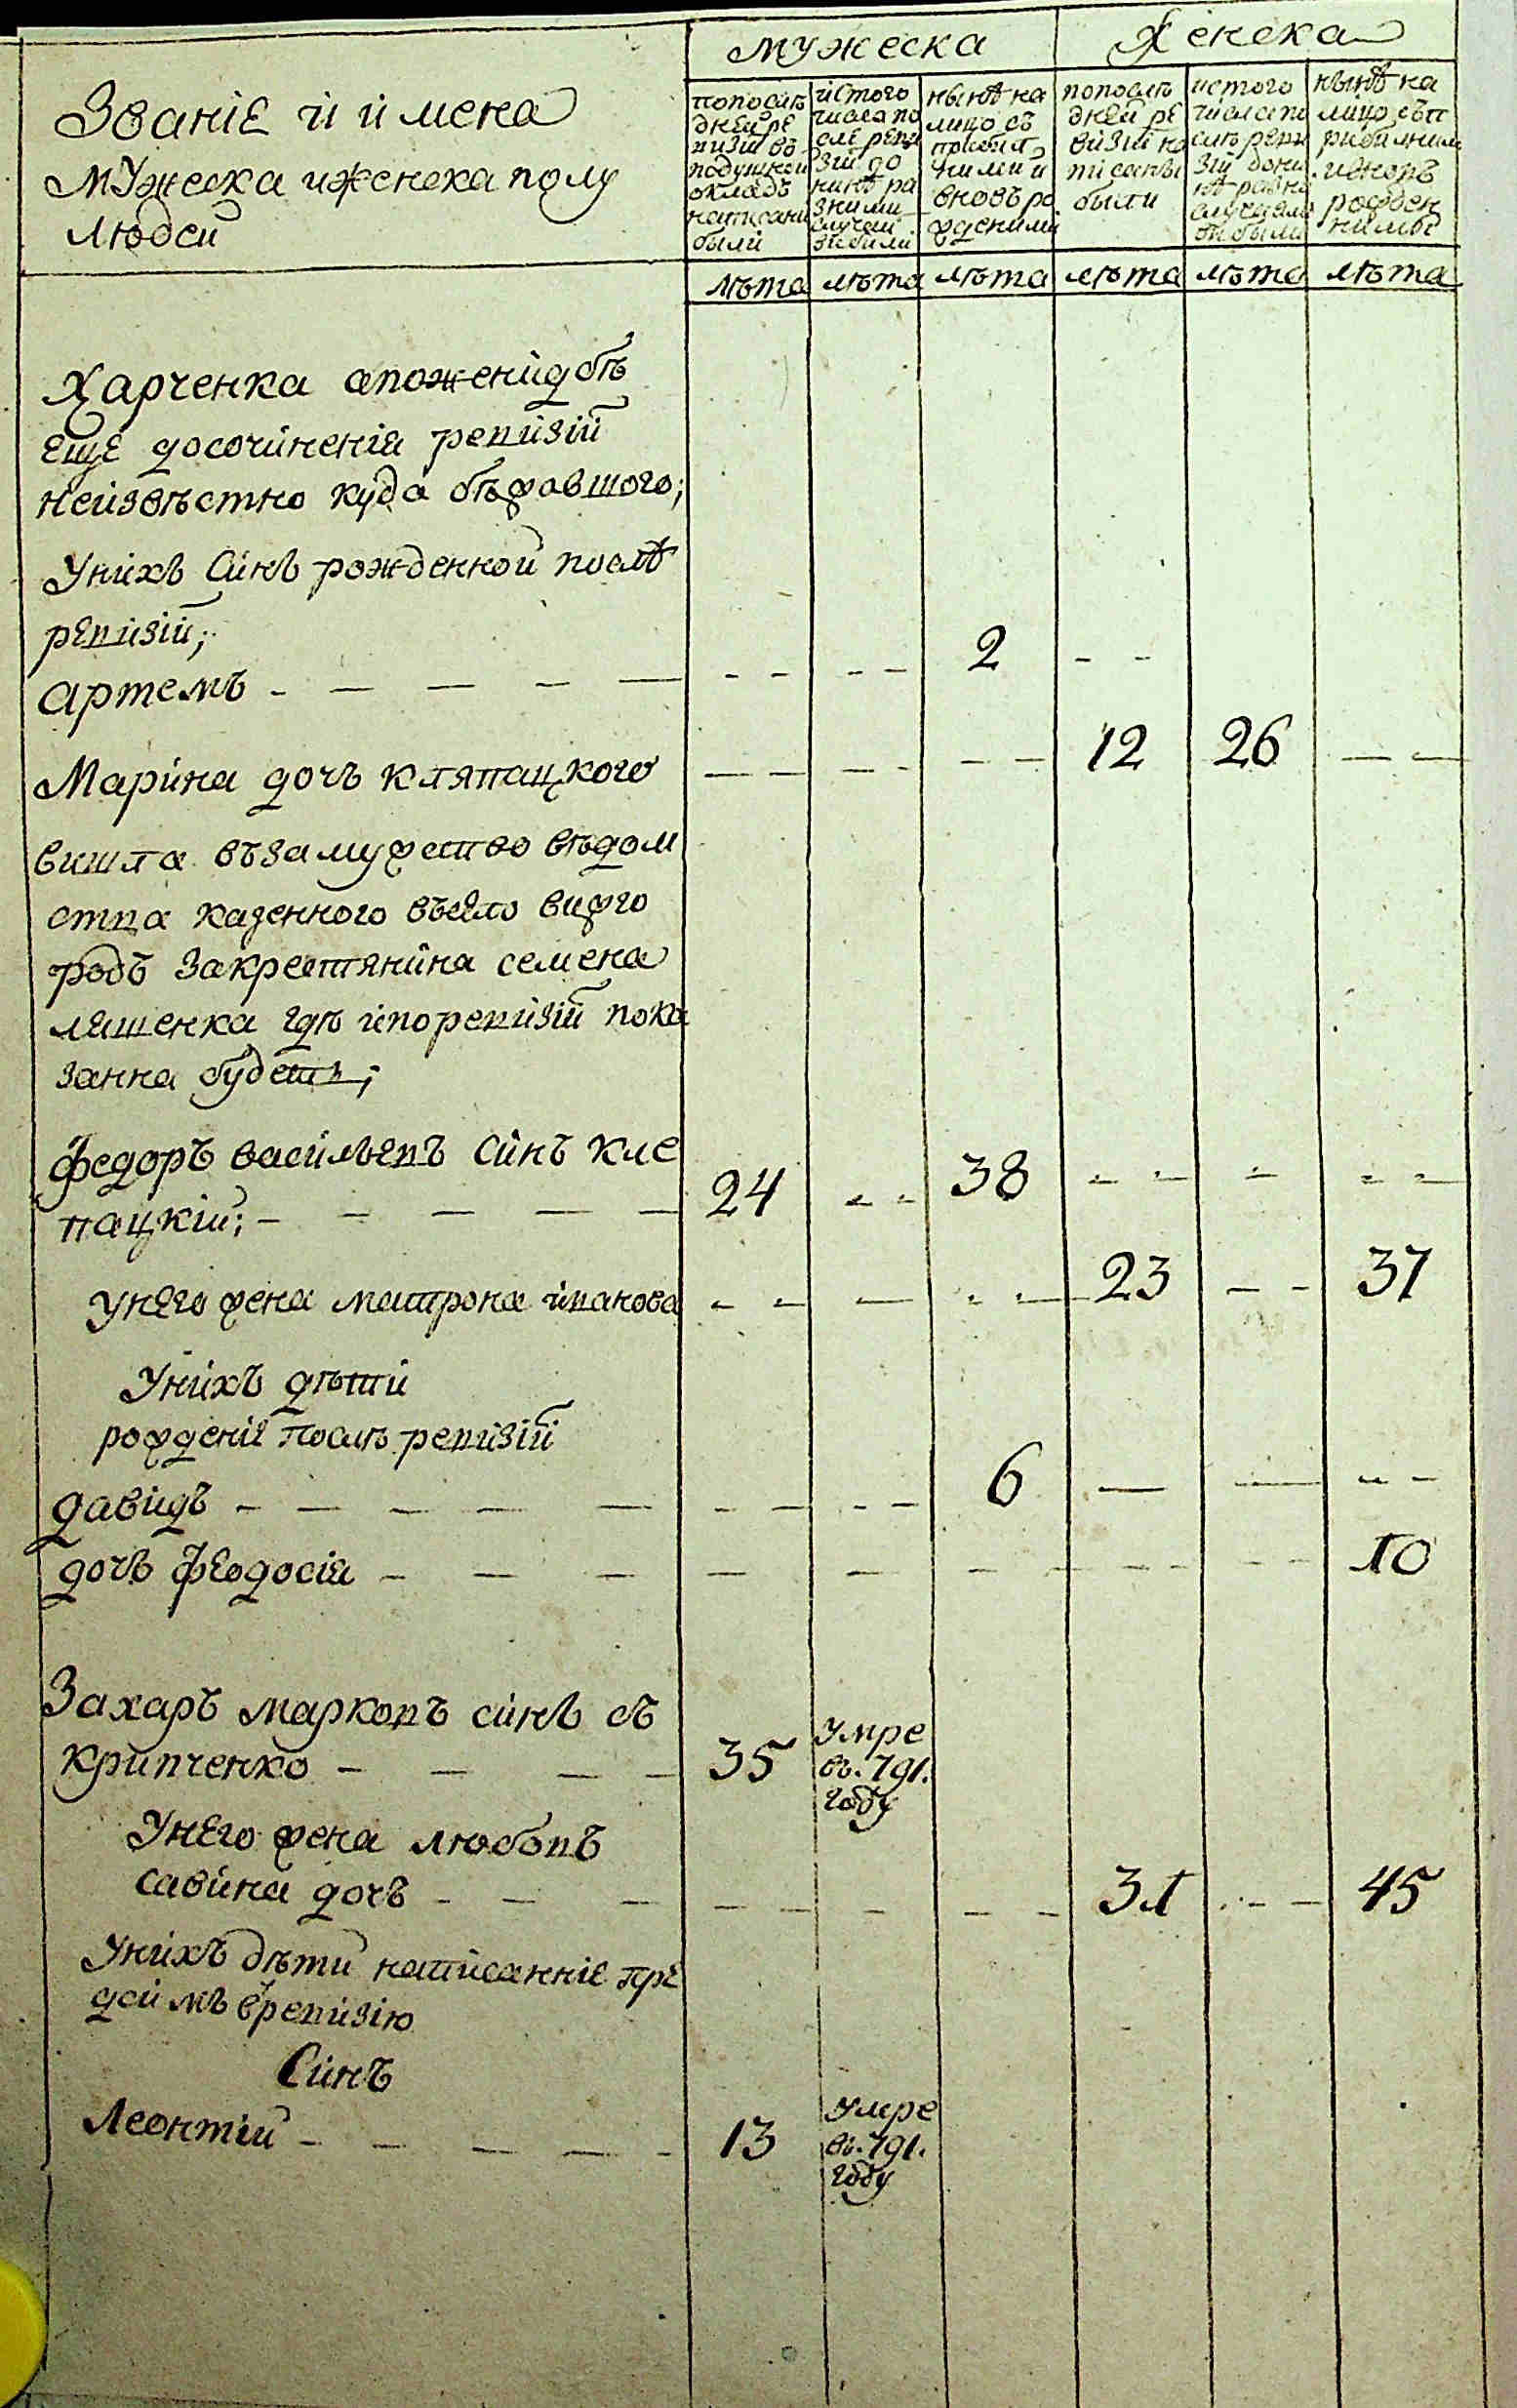 мужеска
женска
Званіе и имена
мужеска иженска полу
людей
попослѣ
дней ре
визіи въ
подушной
окладъ
написани
были
истого
числа по
слѣ реви
зіи до
нинѣ ра
зними
случаи
вибили
нынѣ на
лицо съ
прибил
ними и
вновъ ро
жденими
попослѣ
дней ре
визіи на
писаны
были
истого
числа по
слѣ реви
зіи дони
нѣ разно
случаямо
вибыли
нынѣ на
лицо съп
рибилними
ивновъ
рожден
нимы
лѣта лѣта лѣта лѣта лѣта лѣта
Харченка апоженидбѣ
еще досочиненія ревизіи
неизвѣстно куда бѣжавшого;
Унихъ Синъ рожденной послѣ
ревизіи;
артемъ - - - - - - - 2 - -
Марина дочъ Кляпацкого - - - 12 26 - -
вишла възамужество вѣдом
ства казенного въсело вишго
родъ закрестянина семена
ляшенка гдѣ ипоревизіи пока
занна будетъ;
федоръ васильевъ Синъ Кле
пацкій; - - - - - 24 - - 38 - - - - -
унего жена матрона иванова - - - - - 23 - - 37
Унихъ дѣти
рожденіе послѣ ревизіи
давидъ - - - - - - - - 6 - - - -
дочъ феодосія - - - - - - - - 10
Захаръ марковъ синъ съ
крипченко - - - - 35 умре
въ. 791.
году
Унего жена любовъ
савина дочъ - - - - - - - 31 - - 45
Унихъ дѣти написанніе пре
дсимъ вревизію
Синъ
Леонтій - - - - - 13 умре
въ. 791.
году